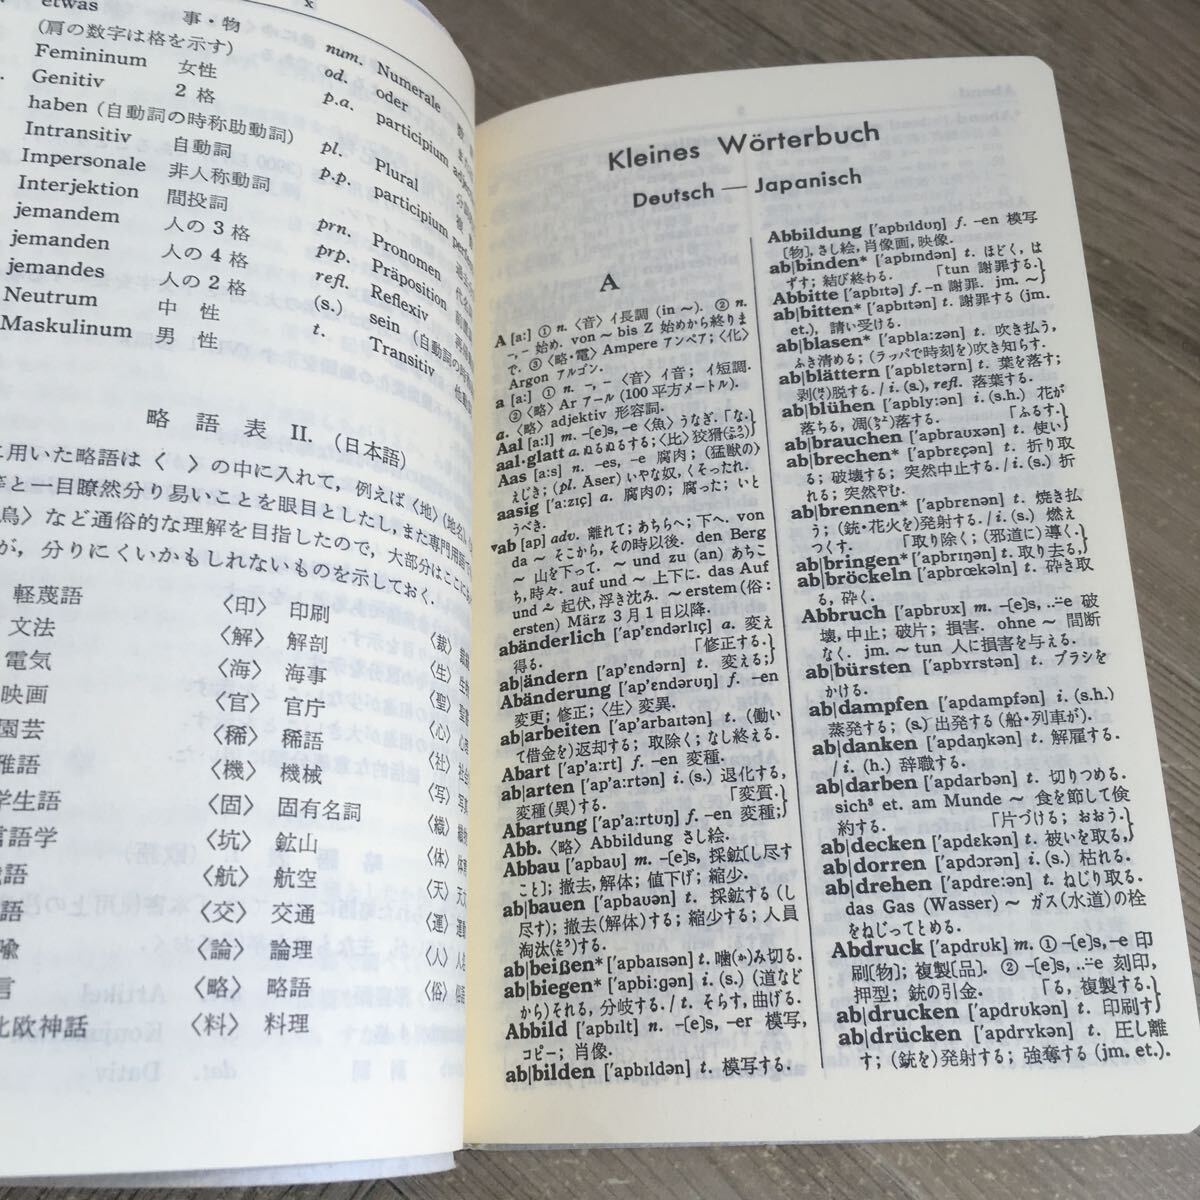 etwas 事・物
(肩の数字は格を示す)
Femininum 女性
Genitiv 2格
haben (自動詞の時称助動詞)
Intransitiv 自動詞
Impersonale 非人称動詞
Interjektion 間投詞
jemandem 人の3格
jemanden 人の4格
jemandes 人の2格
Neutrum 中性
Maskulinum 男性
x
num. Numerale
od. oder
p.a. participium
pl. Plural
p.p. participium
prn. Pronomen
prp. Präposition
refl. Reflexiv
(s.) sein (自動詞の時称
t. Transitiv
略語表 II. (日本語)
用いた略語は〈 〉の中に入れて,例えば〈地〉(地名
一目瞭然分り易いことを眼目としたし,また専門用語
鳥〉など通俗的な理解を目指したので,大部分はここに
が,分りにくいかもしれないものを示しておく.
軽蔑語 〈印〉 印刷 〈裁〉
文法 〈解〉 解剖 〈生〉
電気 〈海〉 海事 〈聖〉
映画 〈官〉 官庁 〈心〉
園芸 〈稀〉 稀語 〈社〉
雅語 〈機〉 機械 〈写〉
学生語 〈固〉 固有名詞 〈織〉
言語学 〈坑〉 鉱山 〈体〉
語 〈航〉 航空 〈天〉
語 〈交〉 交通 〈運〉
喩 〈論〉 論理 〈人〉
言 〈略〉 略語 〈俗〉
北欧神話 〈料〉 料理
Kleines Wörterbuch
Deutsch — Japanisch
A
A [a:] ① n. 〈音〉イ長調 (in ~). ② n.
-, - 始め. von ~ bis Z 始めから終りま
で. ③〈略・電〉Ampere アンペア;〈化〉
Argon アルゴン.
a [a:] ① n. -, - 〈音〉イ音; イ短調.
②〈略〉Ar アール (100平方メートル).
a. 〈略〉adjektiv 形容詞.
Aal [a:l] m. -[e]s, -e 〈魚〉うなぎ.「な.
aal·glatt a. ぬるぬるする;〈比〉狡猾
Aas [a:s] n. -es, -e 腐肉; (猛獣の)
えじき; (pl. Äser) いやな奴,くそったれ.
aasig ['a:zɪç] a. 腐肉の; 腐った; いと
うべき.
*ab [ap] adv. 離れて; あちらへ; 下へ. von
da ~ そこから,その時以後. den Berg
~ 山を下って. ~ und zu (an) あちこ
ち, 時々. auf und ~ 上下に. das Auf
und ~ 起伏,浮き沈み. ~ erstem (俗:
ersten) März 3月1日以降.
abänderlich ['ap'ɛndərlɪç] a. 変え
得る. 「修正する.
ab|ändern ['ap'ɛndərn] t. 変える;
Abänderung ['ap'ɛndərʊŋ] f. -en
変更; 修正;〈生〉変異.
ab|arbeiten ['ap'arbaɪtən] t. (働い
て借金を)返却する; 取除く; なし終える.
Abart ['ap'a:rt] f. -en 変種.
ab|arten ['ap'a:rtən] i. (s.) 退化する,
変種(異)する. 「変質.
Abartung ['ap'a:rtʊŋ] f. -en 変種;
Abb. 〈略〉Abbildung さし絵.
Abbau ['apbaʊ] m. -[e]s, 採鉱[し尽す
こと]; 撤去,解体; 値下げ; 縮少.
ab|bauen ['apbaʊən] t. 採鉱する(し
尽す); 撤去(解体)する; 縮少する; 人員
淘汰する.
ab|beißen* ['apbaɪsən] t. 噛(か)み切る.
ab|biegen* ['apbi:gən] i. (s.) (道など
から)それる,分岐する. / t. そらす,曲げる.
Abbild ['apbɪlt] n. -[e]s, -er 模写,
コピー; 肖像.
ab|bilden ['apbɪldən] t. 模写する.
Abbildung ['apbɪldʊŋ] f. -en 模写
[物], さし絵,肖像画,映像.
ab|binden* ['apbɪndən] t. ほどく,は
ずす; 結び終わる. 「tun 謝罪する.
Abbitte ['apbɪtə] f. -n 謝罪. jm. ~
ab|bitten* ['apbɪtən] t. 謝罪する (jm.
et.), 請い受ける.
ab|blasen* ['apbla:zən] t. 吹き払う,
ふき清める; (ラッパで時刻を)吹き知らす.
ab|blättern ['apblɛtərn] t. 葉を落す;
剥(は)脱する. / i. (s.), refl. 落葉する.
ab|blühen ['apbly:ən] i. (s.h.) 花が
落ちる,凋落する. 「ふるす.
ab|brauchen ['apbraʊxən] t. 使い
ab|brechen* ['apbrɛçən] t. 折り取
る; 破壊する; 突然中止する. / i. (s.) 折
れる; 突然やむ.
ab|brennen* ['apbrɛnən] t. 焼き払
う; (銃・花火を)発射する. / i. (s.) 燃え
つくす. 「取り除く; (邪道に)導く.
ab|bringen* ['apbrɪŋən] t. 取り去る,
ab|bröckeln ['apbrœkəln] t. 砕き取
る, 砕く.
Abbruch ['apbrʊx] m. -[e]s, ..̈-e 破
壊, 中止; 破片; 損害. ohne ~ 間断
なく. jm. ~ tun 人に損害を与える.
ab|bürsten ['apbʏrstən] t. ブラシを
かける.
ab|dampfen ['apdampfən] i. (s.h.)
蒸発する; (s.) 出発する (船・列車が).
ab|danken ['apdaŋkən] t. 解雇する.
/ i. (h.) 辞職する.
ab|darben ['apdarbən] t. 切りつめる.
sich³ et. am Munde ~ 食を節して倹
約する. 「片づける; おおう.
ab|decken ['apdɛkən] t. 被いを取る,
ab|dorren ['apdɔrən] i. (s.) 枯れる.
ab|drehen ['apdre:ən] t. ねじり取る.
das Gas (Wasser) ~ ガス(水道)の栓
をねじってとめる.
Abdruck ['apdrʊk] m. ① -[e]s, -e 印
刷[物]; 複製[品]. ② -[e]s, ..̈-e 刻印,
押型; 銃の引金. 「る, 複製する.
ab|drucken ['apdrʊkən] t. 印刷す
ab|drücken ['apdrʏkən] t. 圧し離
す; (銃を)発射する; 強奪する (jm. et.).